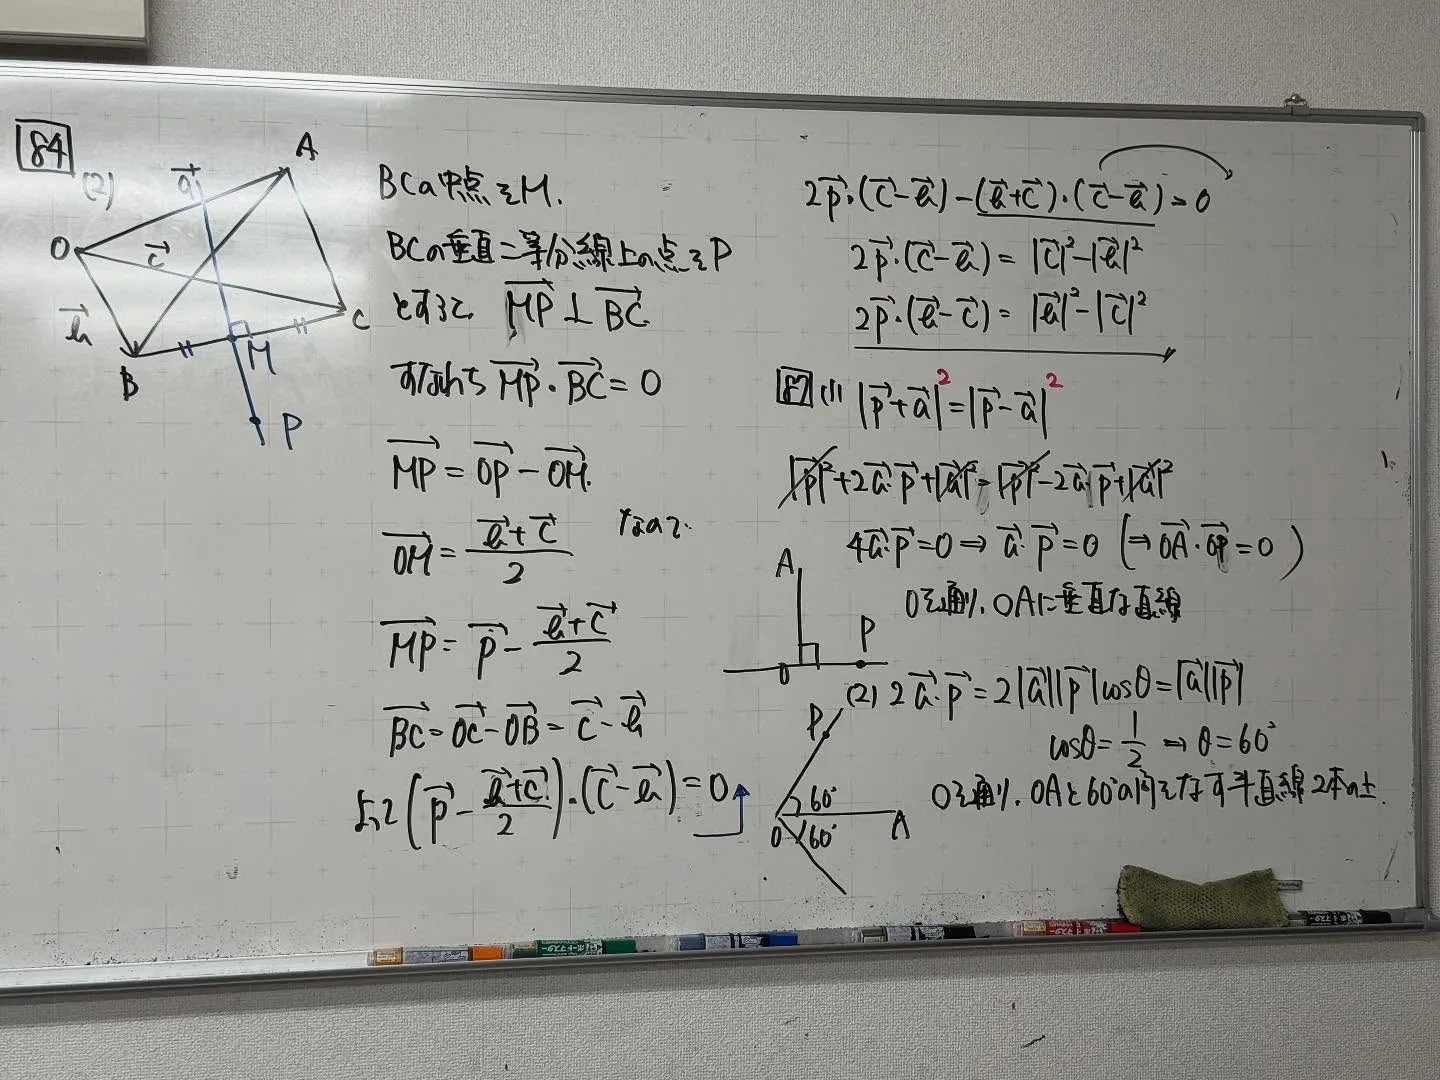 84
(2)
A
a⃗
O
c⃗
b⃗
C
B
M
P
BCの中点をM.
BCの垂直二等分線上の点をP
とすると MP⃗ ⊥ BC⃗
すなわち MP⃗・BC⃗ = 0
MP⃗ = OP⃗ − OM⃗.
OM⃗ = (b⃗+c⃗)/2 なので
MP⃗ = p⃗ − (b⃗+c⃗)/2
BC⃗ = OC⃗ − OB⃗ = c⃗ − b⃗
よって (p⃗ − (b⃗+c⃗)/2)・(c⃗−b⃗) = 0
2p⃗・(c⃗−b⃗)−(b⃗+c⃗)・(c⃗−b⃗) = 0
2p⃗・(c⃗−b⃗) = |c⃗|²−|b⃗|²
2p⃗・(b⃗−c⃗) = |b⃗|²−|c⃗|²
87 (1) |p⃗+a⃗|² = |p⃗−a⃗|²
|p⃗|²+2a⃗・p⃗+|a⃗|² = |p⃗|²−2a⃗・p⃗+|a⃗|²
4a⃗・p⃗=0 ⇒ a⃗・p⃗=0 (⇒ OA⃗・OP⃗=0)
Oを通り、OAに垂直な直線
A
P
O
(2) 2a⃗・p⃗ = 2|a⃗||p⃗|cosθ = |a⃗||p⃗|
cosθ = 1/2 ⇒ θ = 60°
Oを通り、OAと60°の角をなす半直線2本の上.
P
60°
O
60°
A